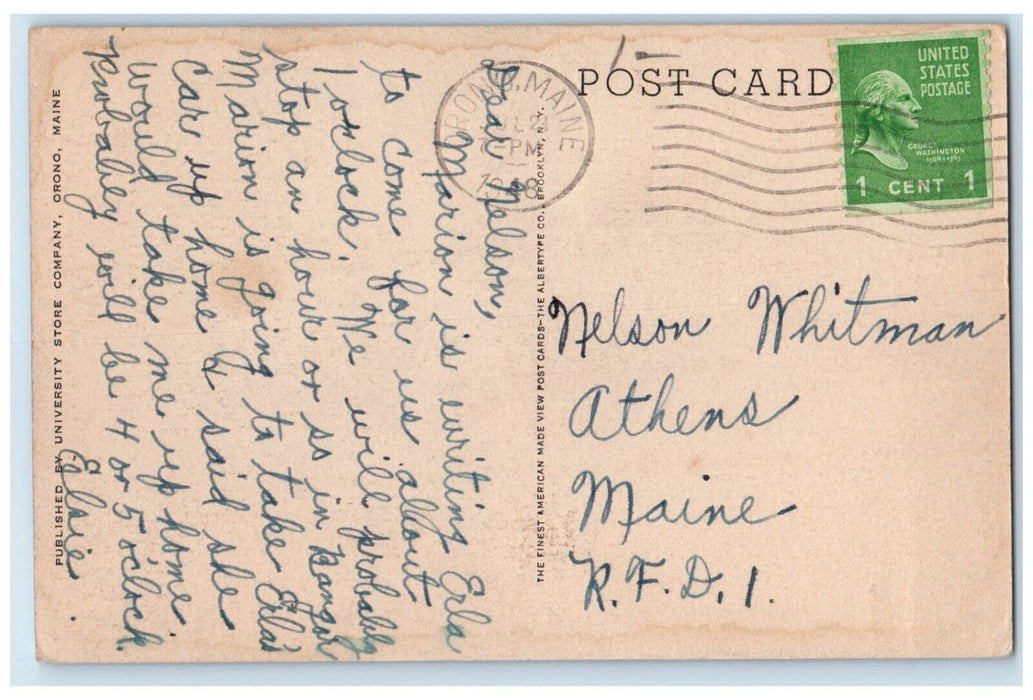 POST CARD
UNITED
STATES
POSTAGE
GEORGE
WASHINGTON
1789-1797
1 CENT 1
ORONO, MAINE
JUL 21
7-PM
1948
Dear Nelson,
Marion is writing Erla
to come for us about
1 o'clock. We will probably
stop an hour or so in Bangor
Marion is going to take Erla's
car up home & said she
would take me up home
Probably will be 4 or 5 o'clock.
Elsie.
Nelson Whitman
Athens
Maine
R.F.D. 1.
THE FINEST AMERICAN MADE VIEW POST CARDS—THE ALBERTYPE CO., BROOKLYN, N.Y.
PUBLISHED BY UNIVERSITY STORE COMPANY, ORONO, MAINE